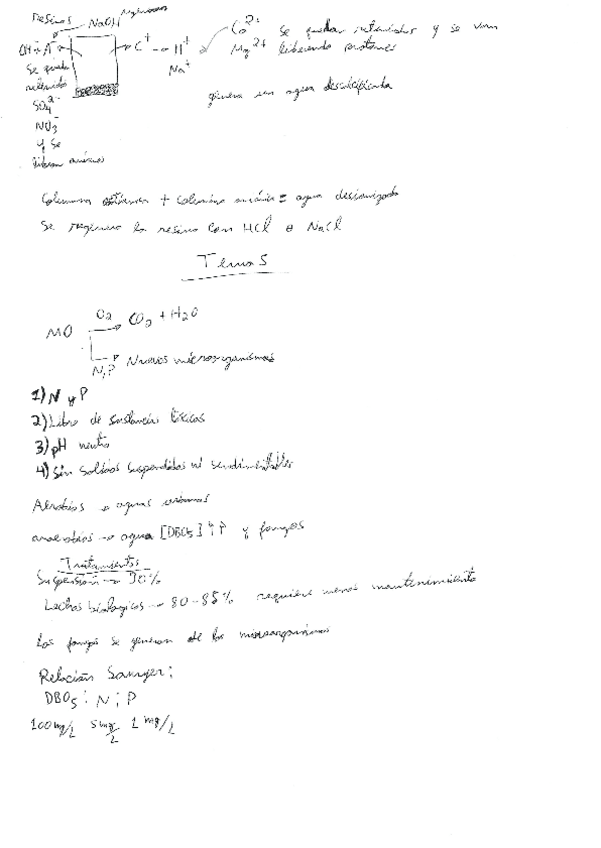 resinas → NaOH
OH⁻ ← A⁻ → C⁺ → H⁺
Na⁺
Ca²⁺
Mg²⁺
Se quedan retenidos y se van
liberando protones
Se queda
retenido
SO₄²⁻
NO₃⁻
y se
liberan
genera un agua descalcificada
Columna catiónica + Columna aniónica = agua desionizada
Se regenera la resina con HCl o NaCl
Tema 5
MO O₂ → CO₂ + H₂O
N, P → Nuevos microorganismos
1) N y P
2) Libre de sustancias tóxicas
3) pH neutro
4) Sin solidos suspendidos ni sedimentables
Aerobios → aguas
anaerobios → agua [DBO₅] ↑↑ y fangos
Tratamientos
Suspensión → 90%
Lechos biologicos → 80-85% requiere menos mantenimiento
Los fangos se generan de los microorganismos
Relación Sawyer:
DBO₅ : N : P
100 mg/L 5 mg/L 1 mg/L